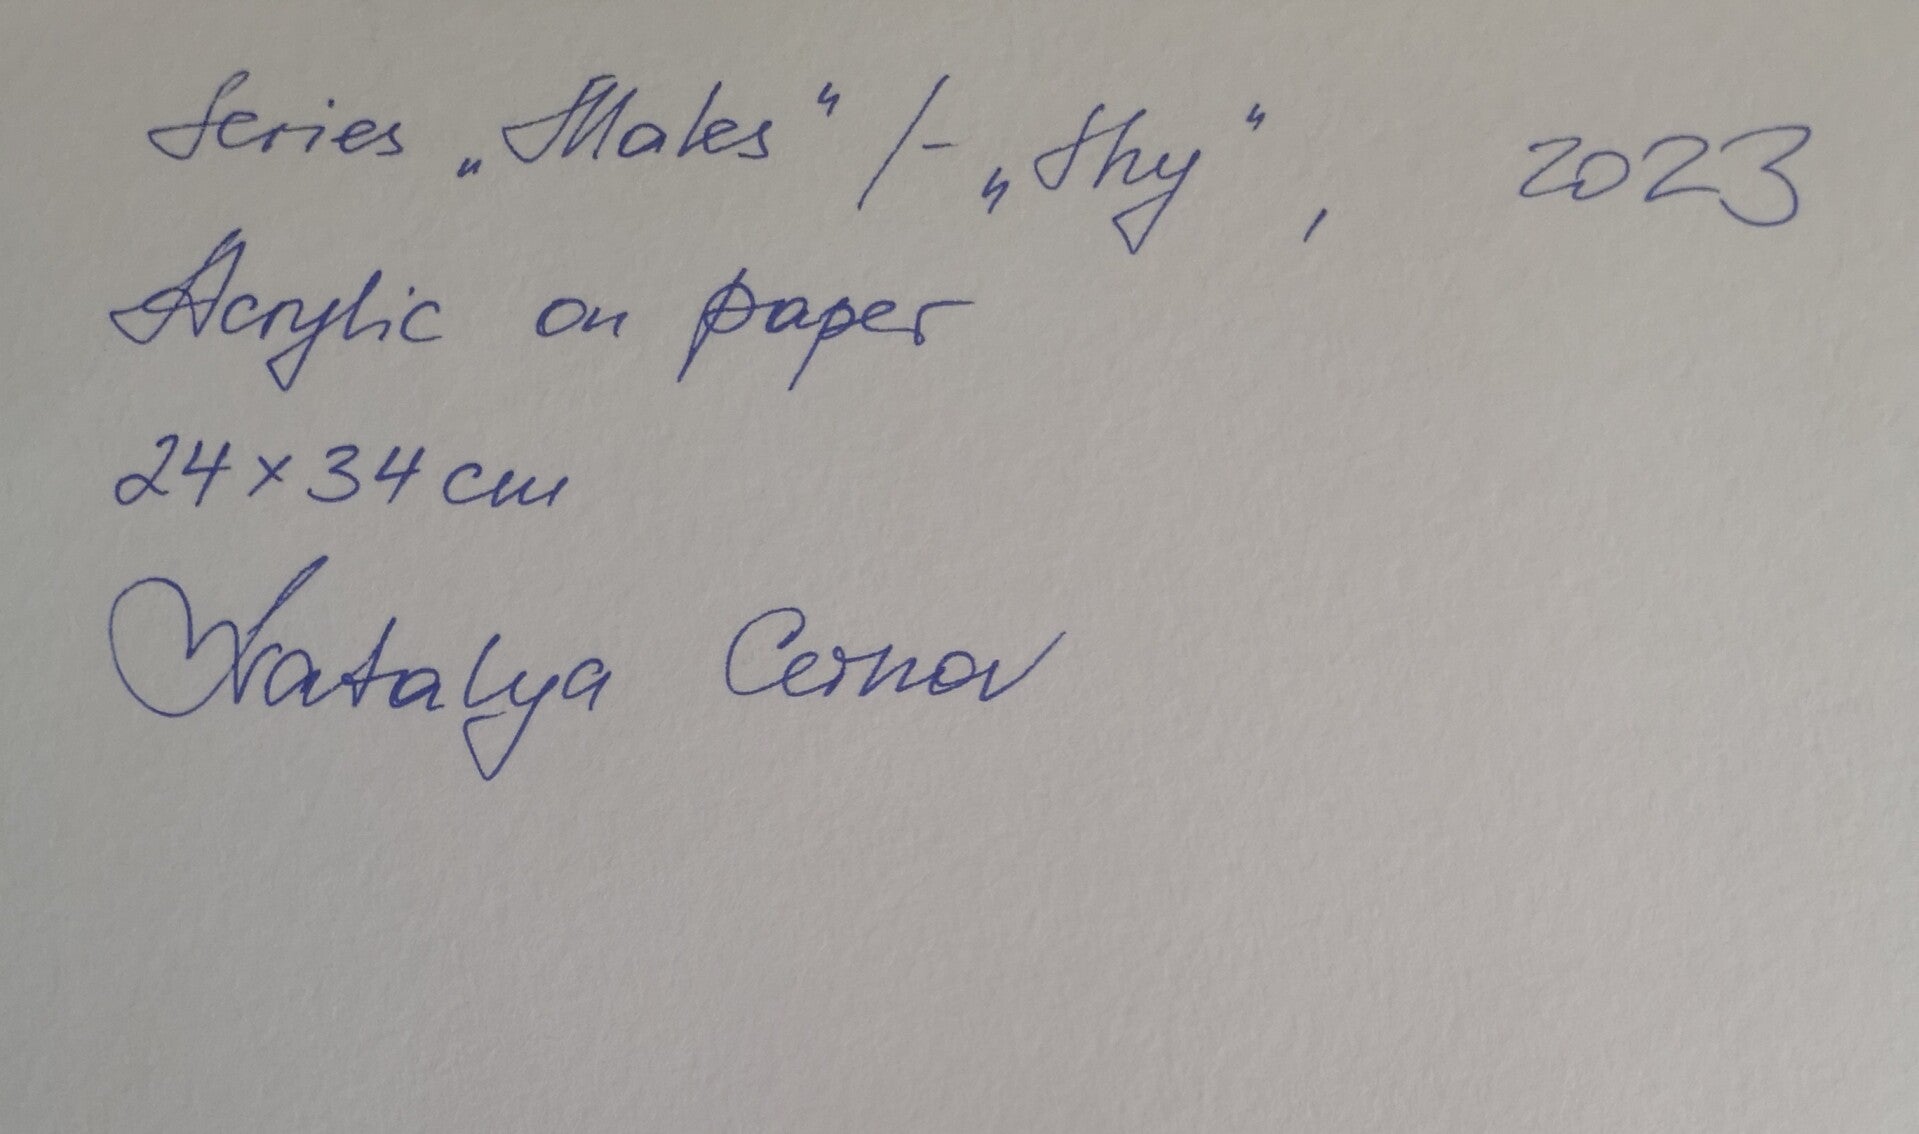 Series „Males“ /- „Shy“, 2023
Acrylic on paper
24 x 34 cm
Natalya Cernov